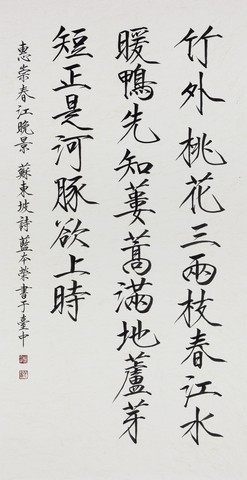 竹外桃花三兩枝春江水
暖鴨先知蔞蒿滿地蘆芽
短正是河豚欲上時
惠崇春江晚景 蘇東坡詩藍本榮書于臺中